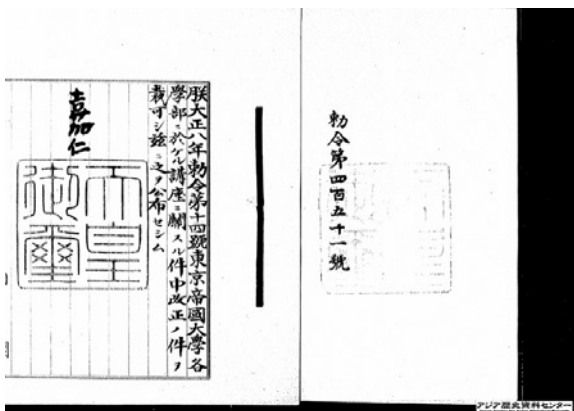 勅令第四百五十一號
朕大正八年勅令第十四號東京帝國大學各
學部ニ於ケル講座ニ關スル件中改正ノ件ヲ
裁可シ茲ニ之ヲ公布セシム
嘉仁
天皇
御璽
アジア歴史資料センター